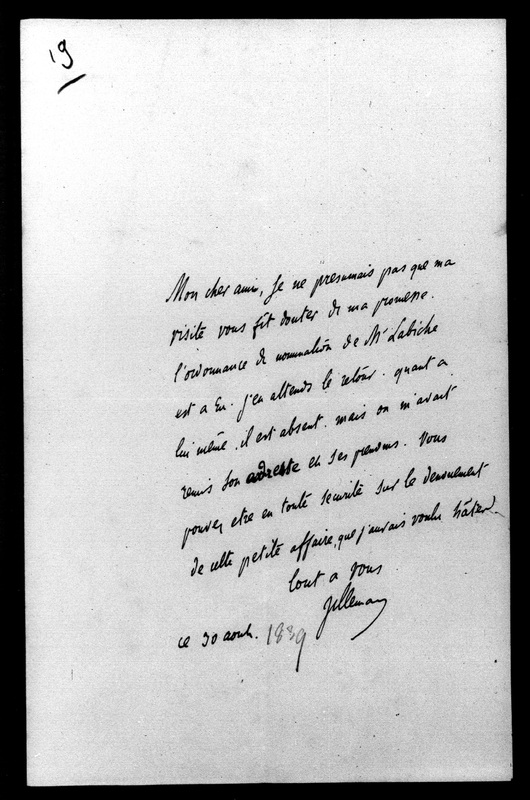 19
Mon cher ami, je ne presumais pas que ma
visite vous fit douter de ma promesse.
l'ordonnance de nomination de Mr Labiche
est a Eu. j'en attends le retour. quant a
lui même, il est absent. mais on m'avait
remis son adresse et ses prenoms. Vous
pouvez etre en toute securité sur le denouement
de cette petite affaire, que j'aurais voulu hâter.
tout a vous
Villemain
ce 30 août. 1839